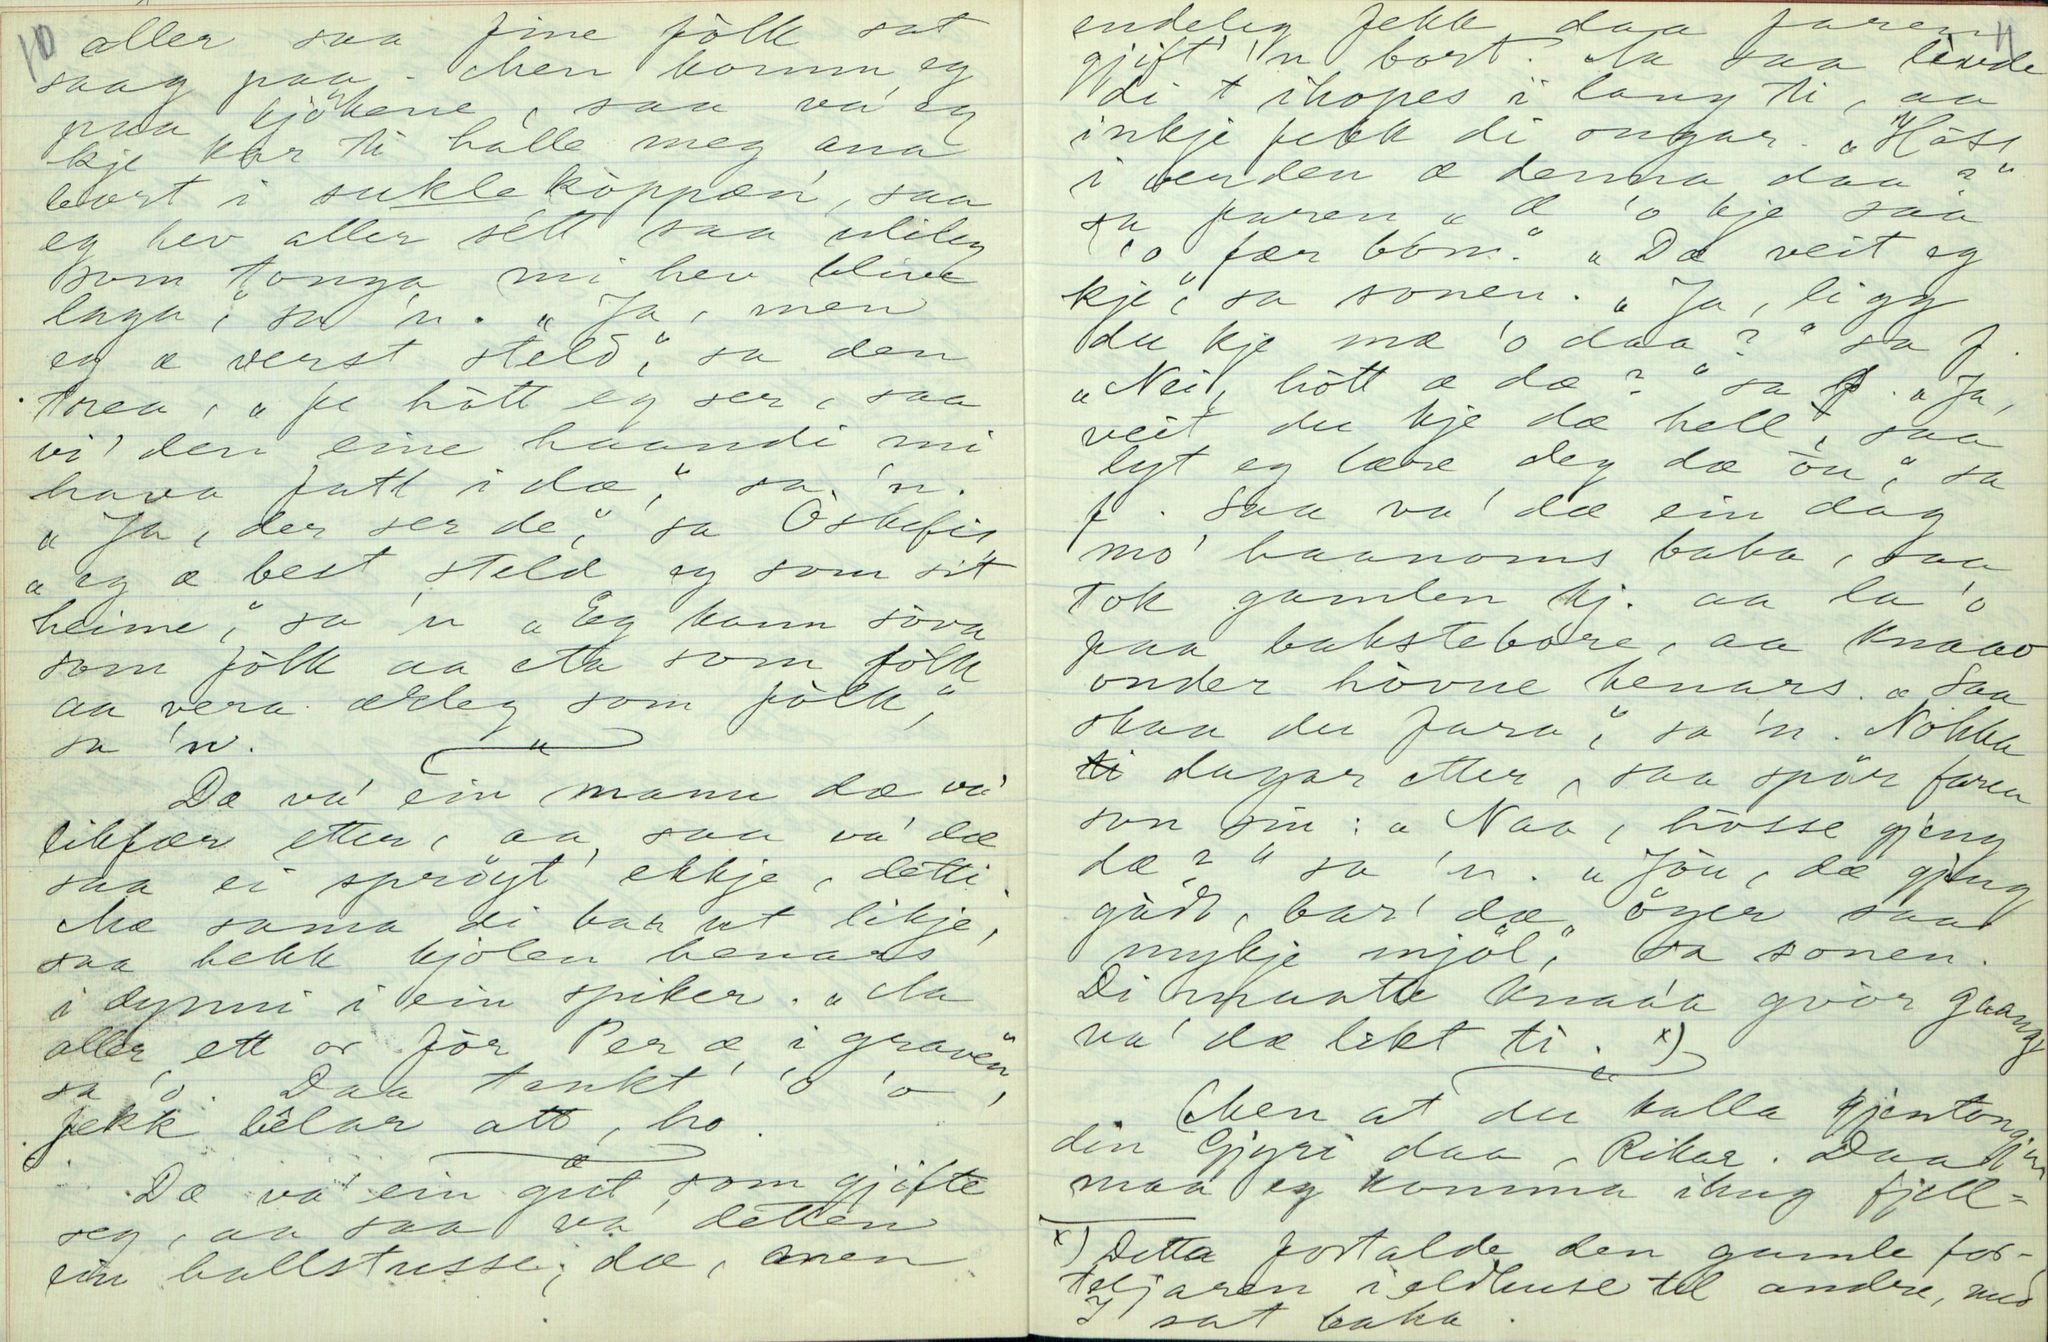 10
aller saa fine fólk sat
saag paa. Men komm eg
paa kjökene, saa va' eg
kje kar ti halle meg ana
bort i sukleköppæn, saa
eg hev aller sétt saa ulileg
som tonga mi hev blive
laga," sa 'n. "Ja, men
eg æ verst steld," sa den
trea, "fe hôtt eg ser, saa
vi' den eine haandi mi
hava fatt i dæ," sa 'n.
"Ja, der ser de," sa Öskefis,
"eg æ best steld eg som sit
heime," sa 'n "Eg kann sova
som fôlk aa eta som fôlk
aa vera ærleg som fôlk,"
sa 'n.
Dæ va' ein mann dæ va'
likfær etter, aa saa va' dæ
saa ei spröyt' ekkje, detti.
Mæ sama di bar ut likje,
saa hekk kjolen henars
i dynni i ein spiker. "Aa
aller ett or för Per æ i graven",
sa 'o. Daa tenkt' 'o 'o,
fekk bêlar att, ho.
Dæ va' ein gut som gjifte
seg, aa saa va detten
ein ballstusse, dæ, men
11
endeleg fekk daa faren
gjift' 'n bort. Aa saa livde
di t ihopes i lang ti, aa
inkje fekk di ongar. "Hôss
i verden æ denna daa?"
sa faren "Æ 'o kje saa
'o fær bón." "Dæ veit eg
kje", sa sonen. "Ja, ligg
du kje mæ 'o daa?" sa f.
"Nei, hôtt æ dæ?" sa s. "Ja,
veit du kje dæ hell, saa
lyt eg lære deg dæ ôu," sa
f. Saa va' dæ ein dag
mo' haanoms baka, saa
tok gamlen kj. aa la 'o
paa bakstebóre, aa knaao
onder hôvne henars. "Saa
skaa du fara", sa 'n. Nokka
dagar etter, saa spör faren
son sin: "Naa, hôsse gjeng
dæ?" sa 'n. "Jôu, dæ gjeng
gådt, bar' dæ öyer saa
mykje mjöl," sa sonen.
Di maatte knaa'a gvór gaang
va' dæ lekt ti. x)
Men at du kalla kjentongjen
din Gjyri daa, Rikar. Daa
maa eg komma ihug fjell-
x) Detta fortalde den gamle for-
teljaren i eldhuse til andre, med
I sat baka.